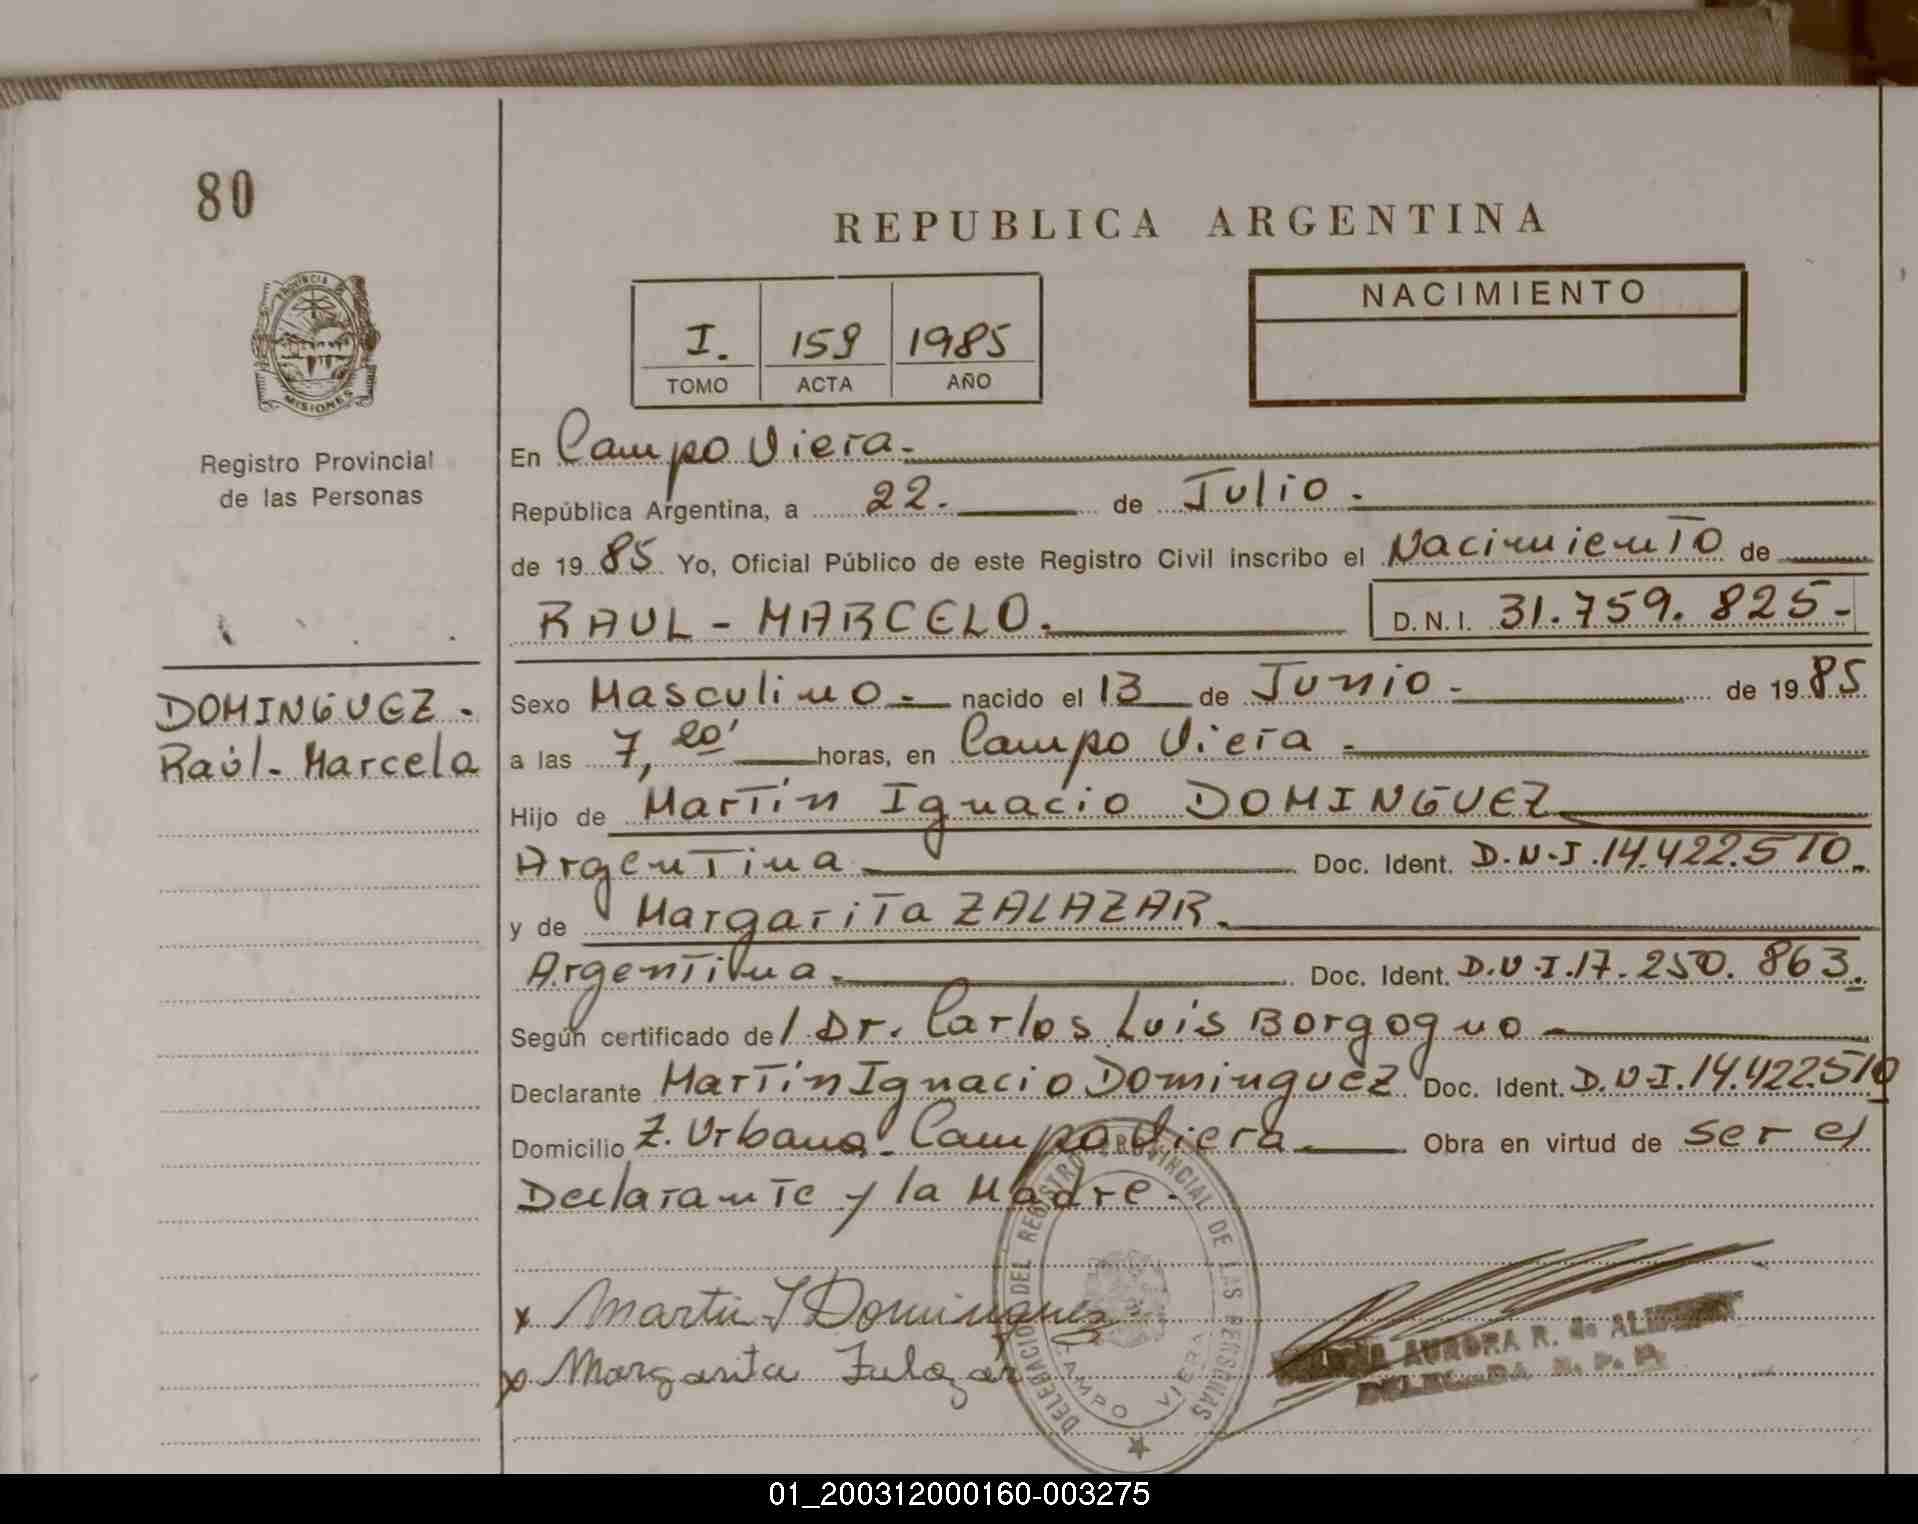 80
REPUBLICA ARGENTINA
I. 159 1985
TOMO ACTA AÑO
NACIMIENTO
PROVINCIA DE MISIONES
Registro Provincial
de las Personas
DOMINGUEZ.
Raúl-Marcelo
En Campo Viera.
República Argentina, a 22. de Julio.
de 1985 Yo, Oficial Público de este Registro Civil inscribo el Nacimiento de
RAUL-MARCELO. D.N.I. 31.759.825-
Sexo Masculino- nacido el 13 de Junio- de 1985
a las 7,20' horas, en Campo Viera-
Hijo de Martín Ignacio DOMINGUEZ
Argentina Doc. Ident. D.N.I.14.422.510.
y de Margarita ZALAZAR.
Argentina. Doc. Ident. D.N.I.17.250.863.
Según certificado del Dr. Carlos Luis Borgogno-
Declarante Martín Ignacio Dominguez Doc. Ident. D.N.I.14.422.510
Domicilio Z. Urbana. Campo Viera Obra en virtud de ser el
Declarante y la Madre.
x Martin I Dominguez
x Margarita Zalazar
DEL REGISTRO PROVINCIAL DE LAS PERSONAS
CAMPO VIERA
AURORA R. de
01_200312000160-003275